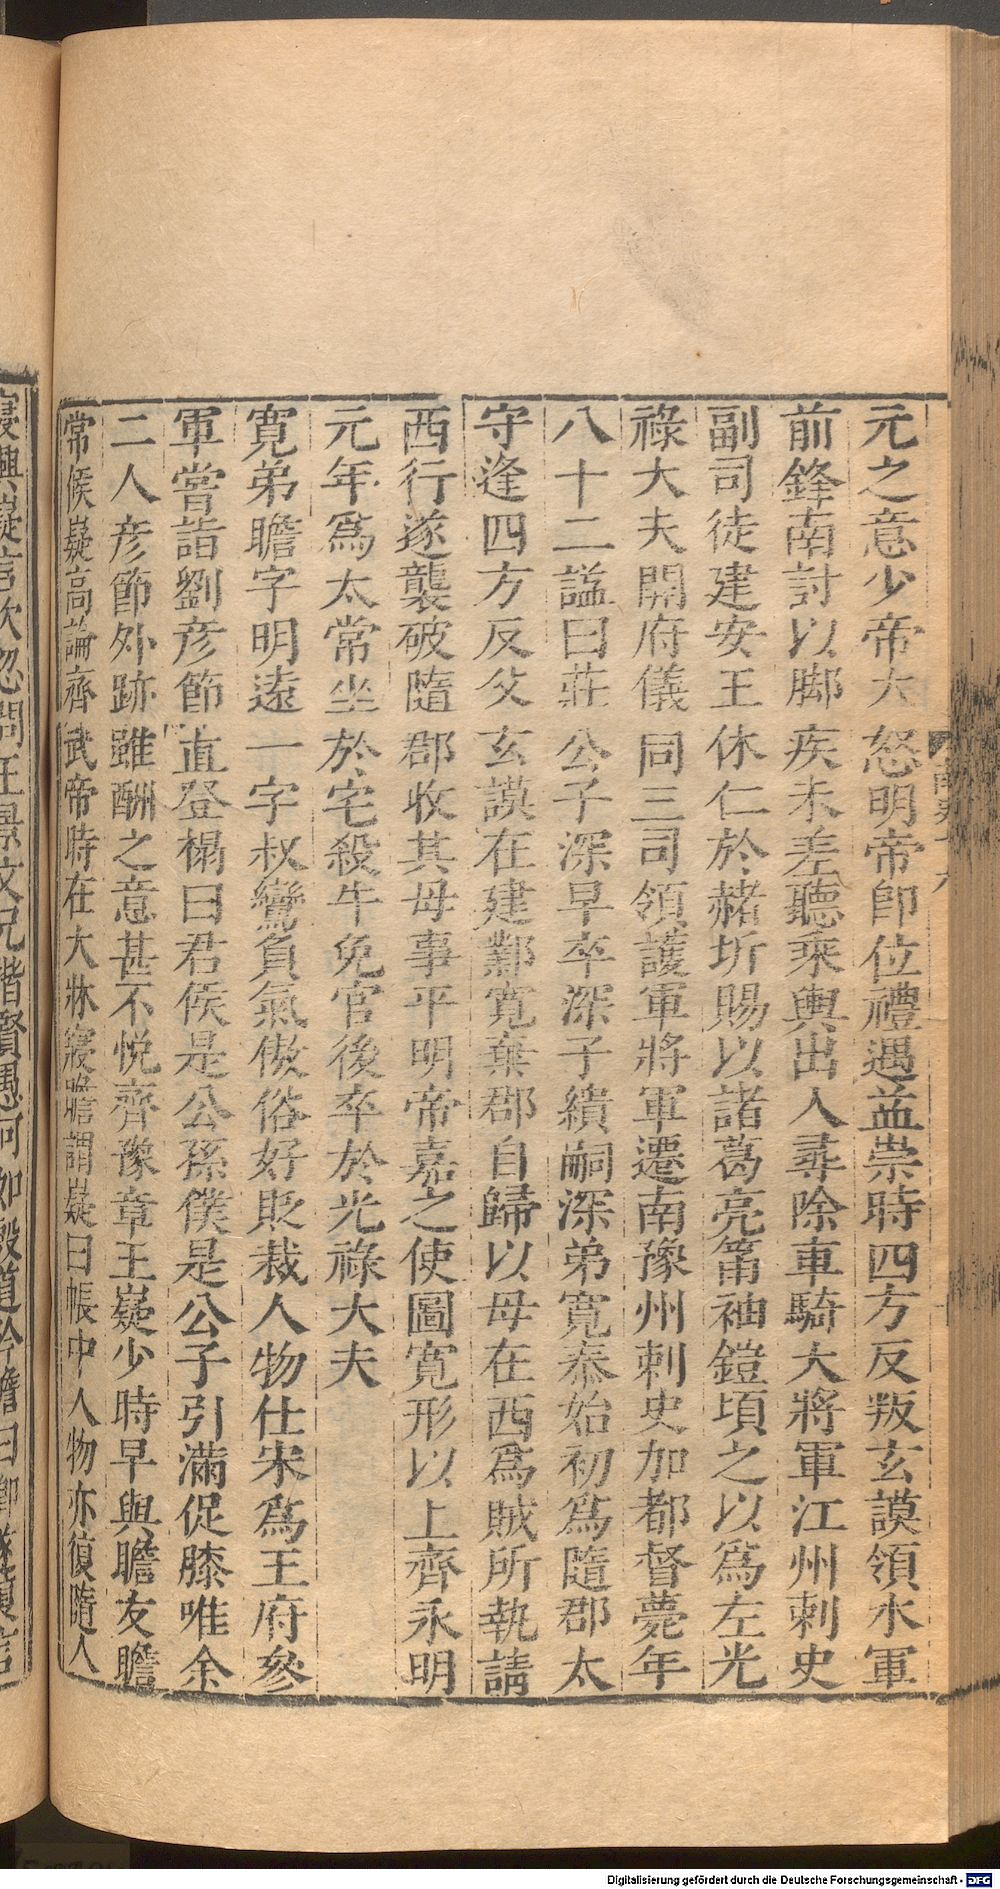 元之意少帝大怒明帝卽位禮遇益崇時四方反叛玄謨領水軍
前鋒南討以脚疾未差聽乘輿出入尋除車騎大將軍江州刺史
副司徒建安王休仁於赭圻賜以諸葛亮筩袖鎧頃之以爲左光
祿大夫開府儀同三司領護軍將軍遷南豫州刺史加都督薨年
八十二諡曰莊公子深早卒深子繢嗣深弟寬泰始初爲隨郡太
守逢四方反父玄謨在建鄴寬棄郡自歸以母在西爲賊所執請
西行遂襲破隨郡收其母事平明帝嘉之使圖寬形以上齊永明
元年爲太常坐於宅殺牛免官後卒於光祿大夫
寬弟瞻字明遠一字叔鸞負氣傲俗好貶裁人物仕宋爲王府參
軍嘗詣劉彥節直登榻曰君侯是公孫僕是公子引滿促膝唯余
二人彥節外跡雖酬之意甚不悅齊豫章王嶷少時早與瞻友瞻
常候嶷高論齊武帝時在大牀寢瞻謂嶷曰帳中人物亦復隨人
寢興嶷言次忽問王景文兄楷賢愚何如殷道矜瞻曰卿遂復言
Digitalisierung gefördert durch die Deutsche Forschungsgemeinschaft - DFG